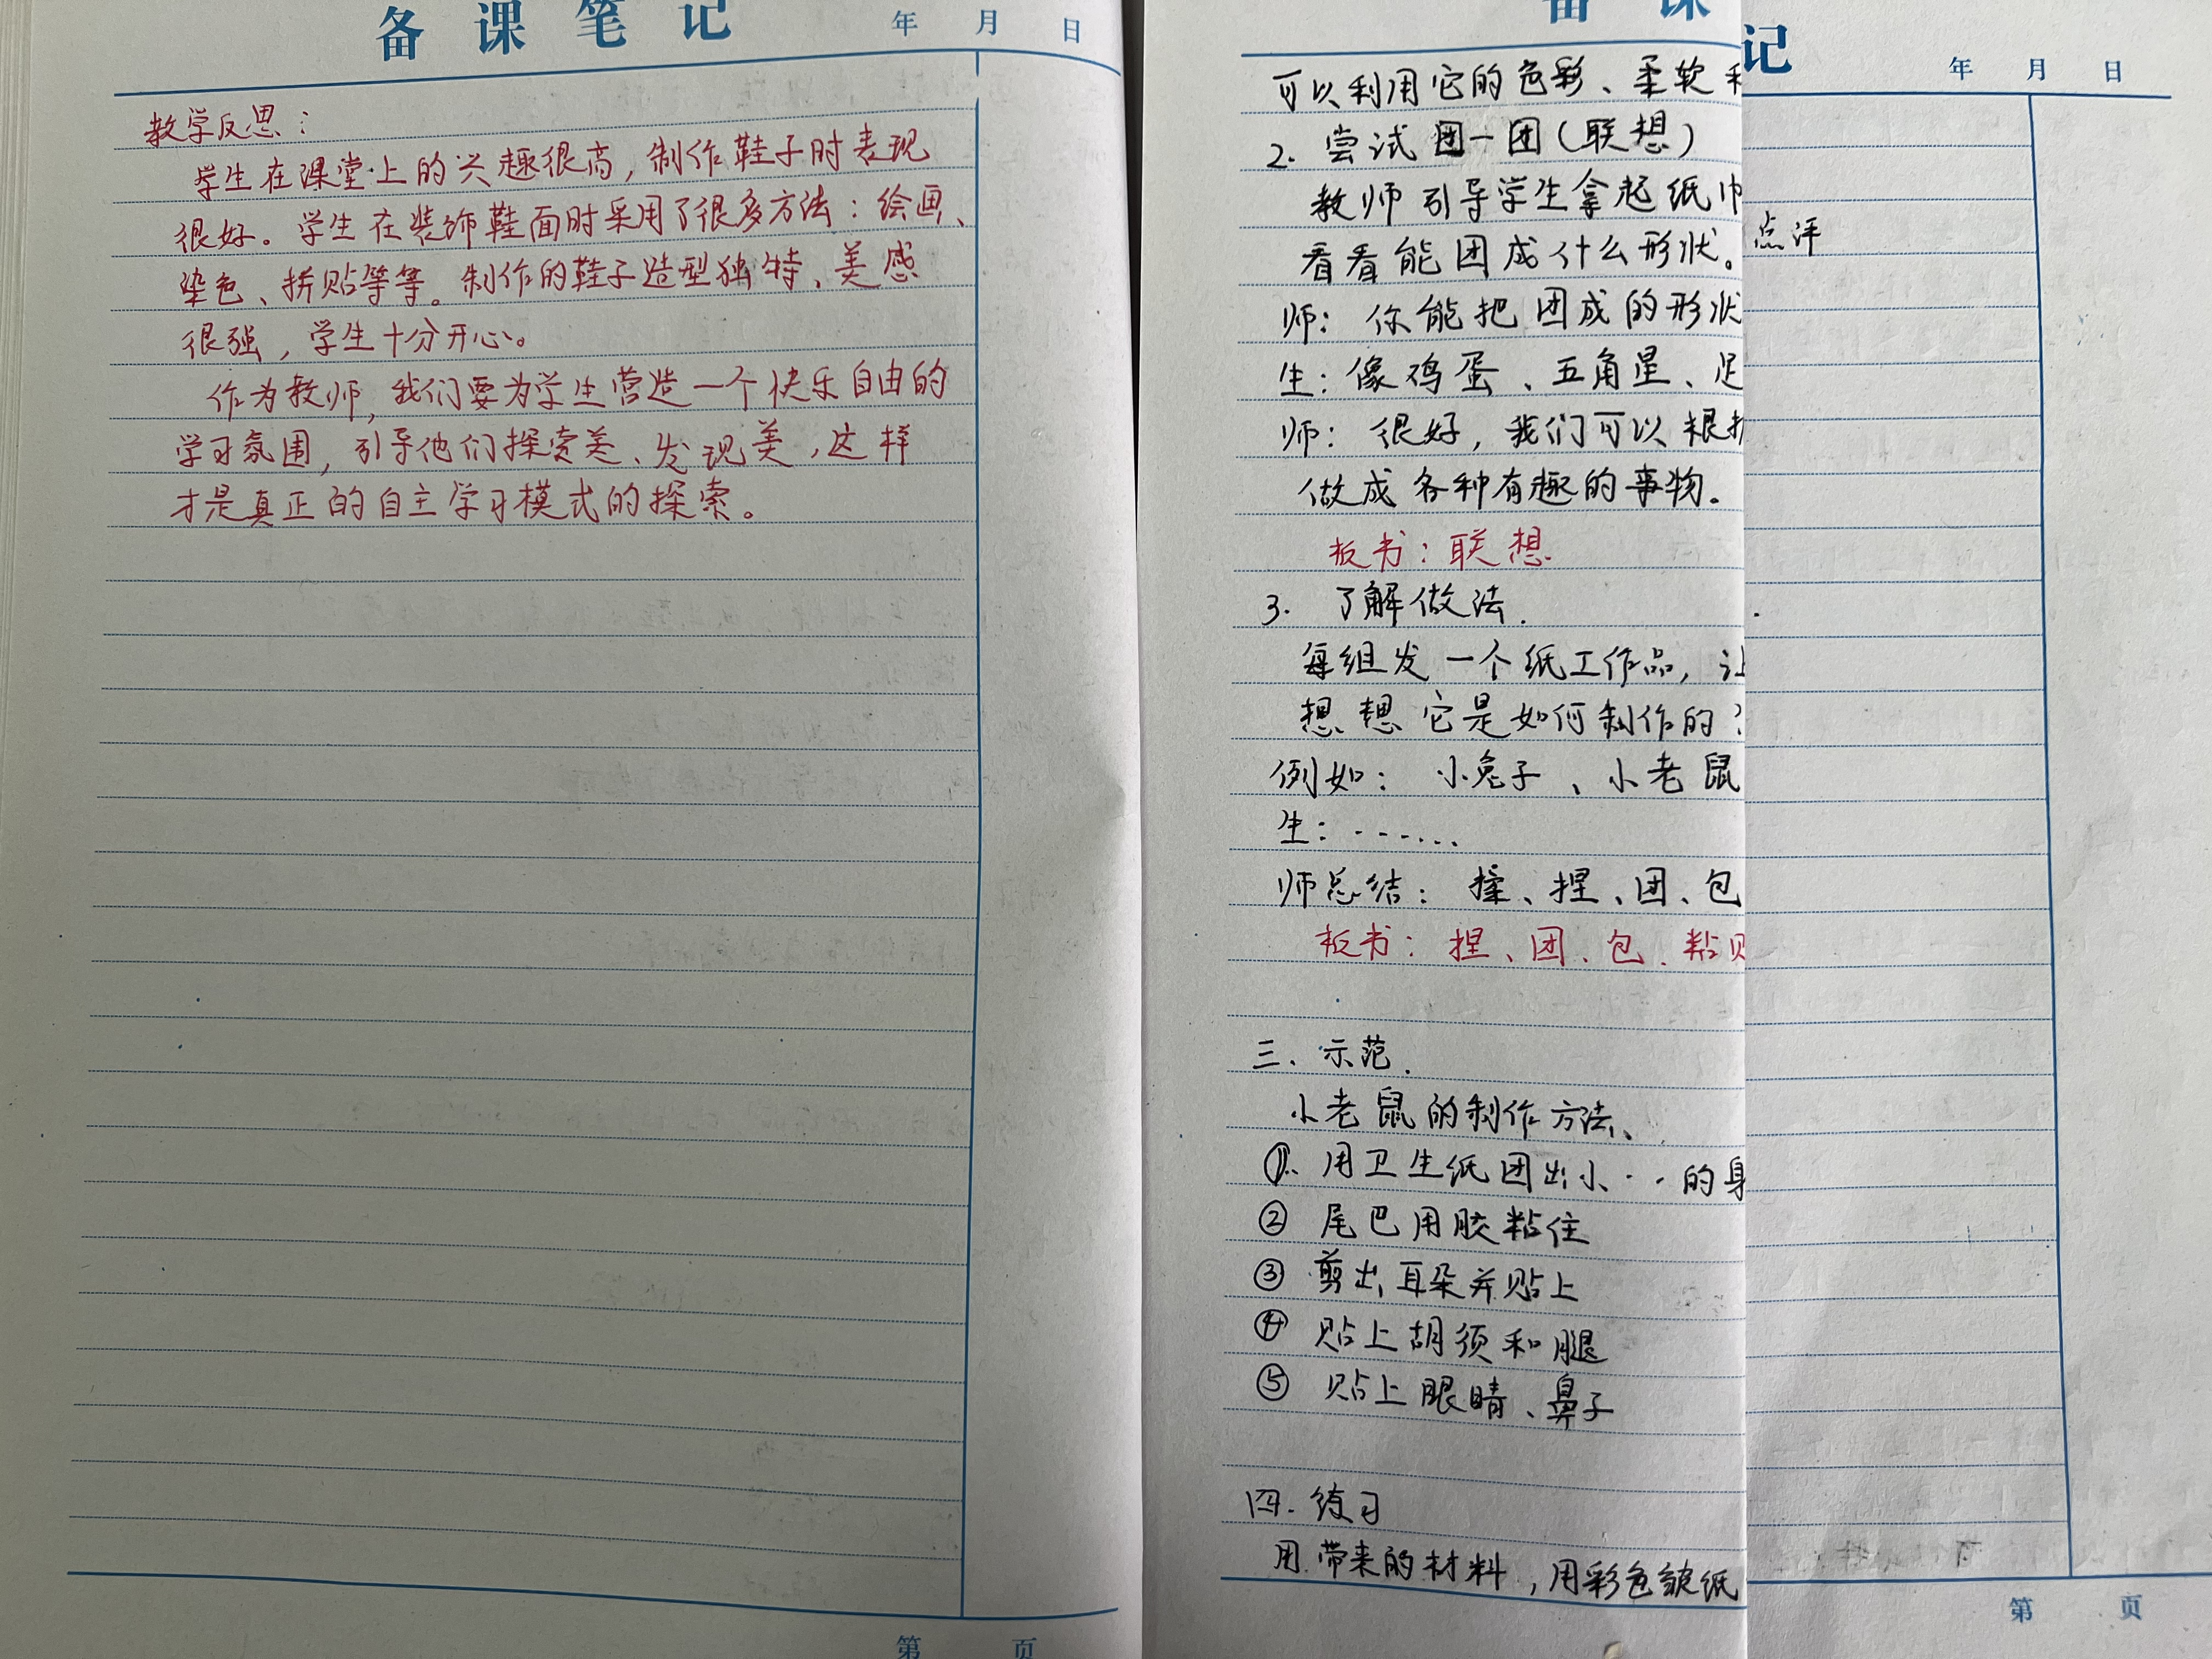 备课笔记 年 月 日
教学反思：
学生在课堂上的兴趣很高，制作鞋子时表现
很好。学生在装饰鞋面时采用了很多方法：绘画、
染色、拼贴等等。制作的鞋子造型独特、美感
很强，学生十分开心。
作为教师，我们要为学生营造一个快乐自由的
学习氛围，引导他们探索美、发现美，这样
才是真正的自主学习模式的探索。
第 页
备课
可以利用它的色彩、柔软
2. 尝试团一团（联想）
教师引导学生拿起纸巾
看看能团成什么形状。
师：你能把团成的形状
生：像鸡蛋、五角星、足
师：很好，我们可以根据
做成各种有趣的事物。
板书：联想.
3. 了解做法.
每组发一个纸工作品，让
想想它是如何制作的？
例如：小兔子、小老鼠
生：......
师总结：揉、捏、团、包
板书：捏、团、包、粘贴
三. 示范.
小老鼠的制作方法、
①. 用卫生纸团出小··的身
② 尾巴用胶粘住
③ 剪出耳朵并贴上
④ 贴上胡须和腿
⑤ 贴上眼睛、鼻子
四. 练习
用带来的材料，用彩色皱纸
记 年 月 日
点评
第 页